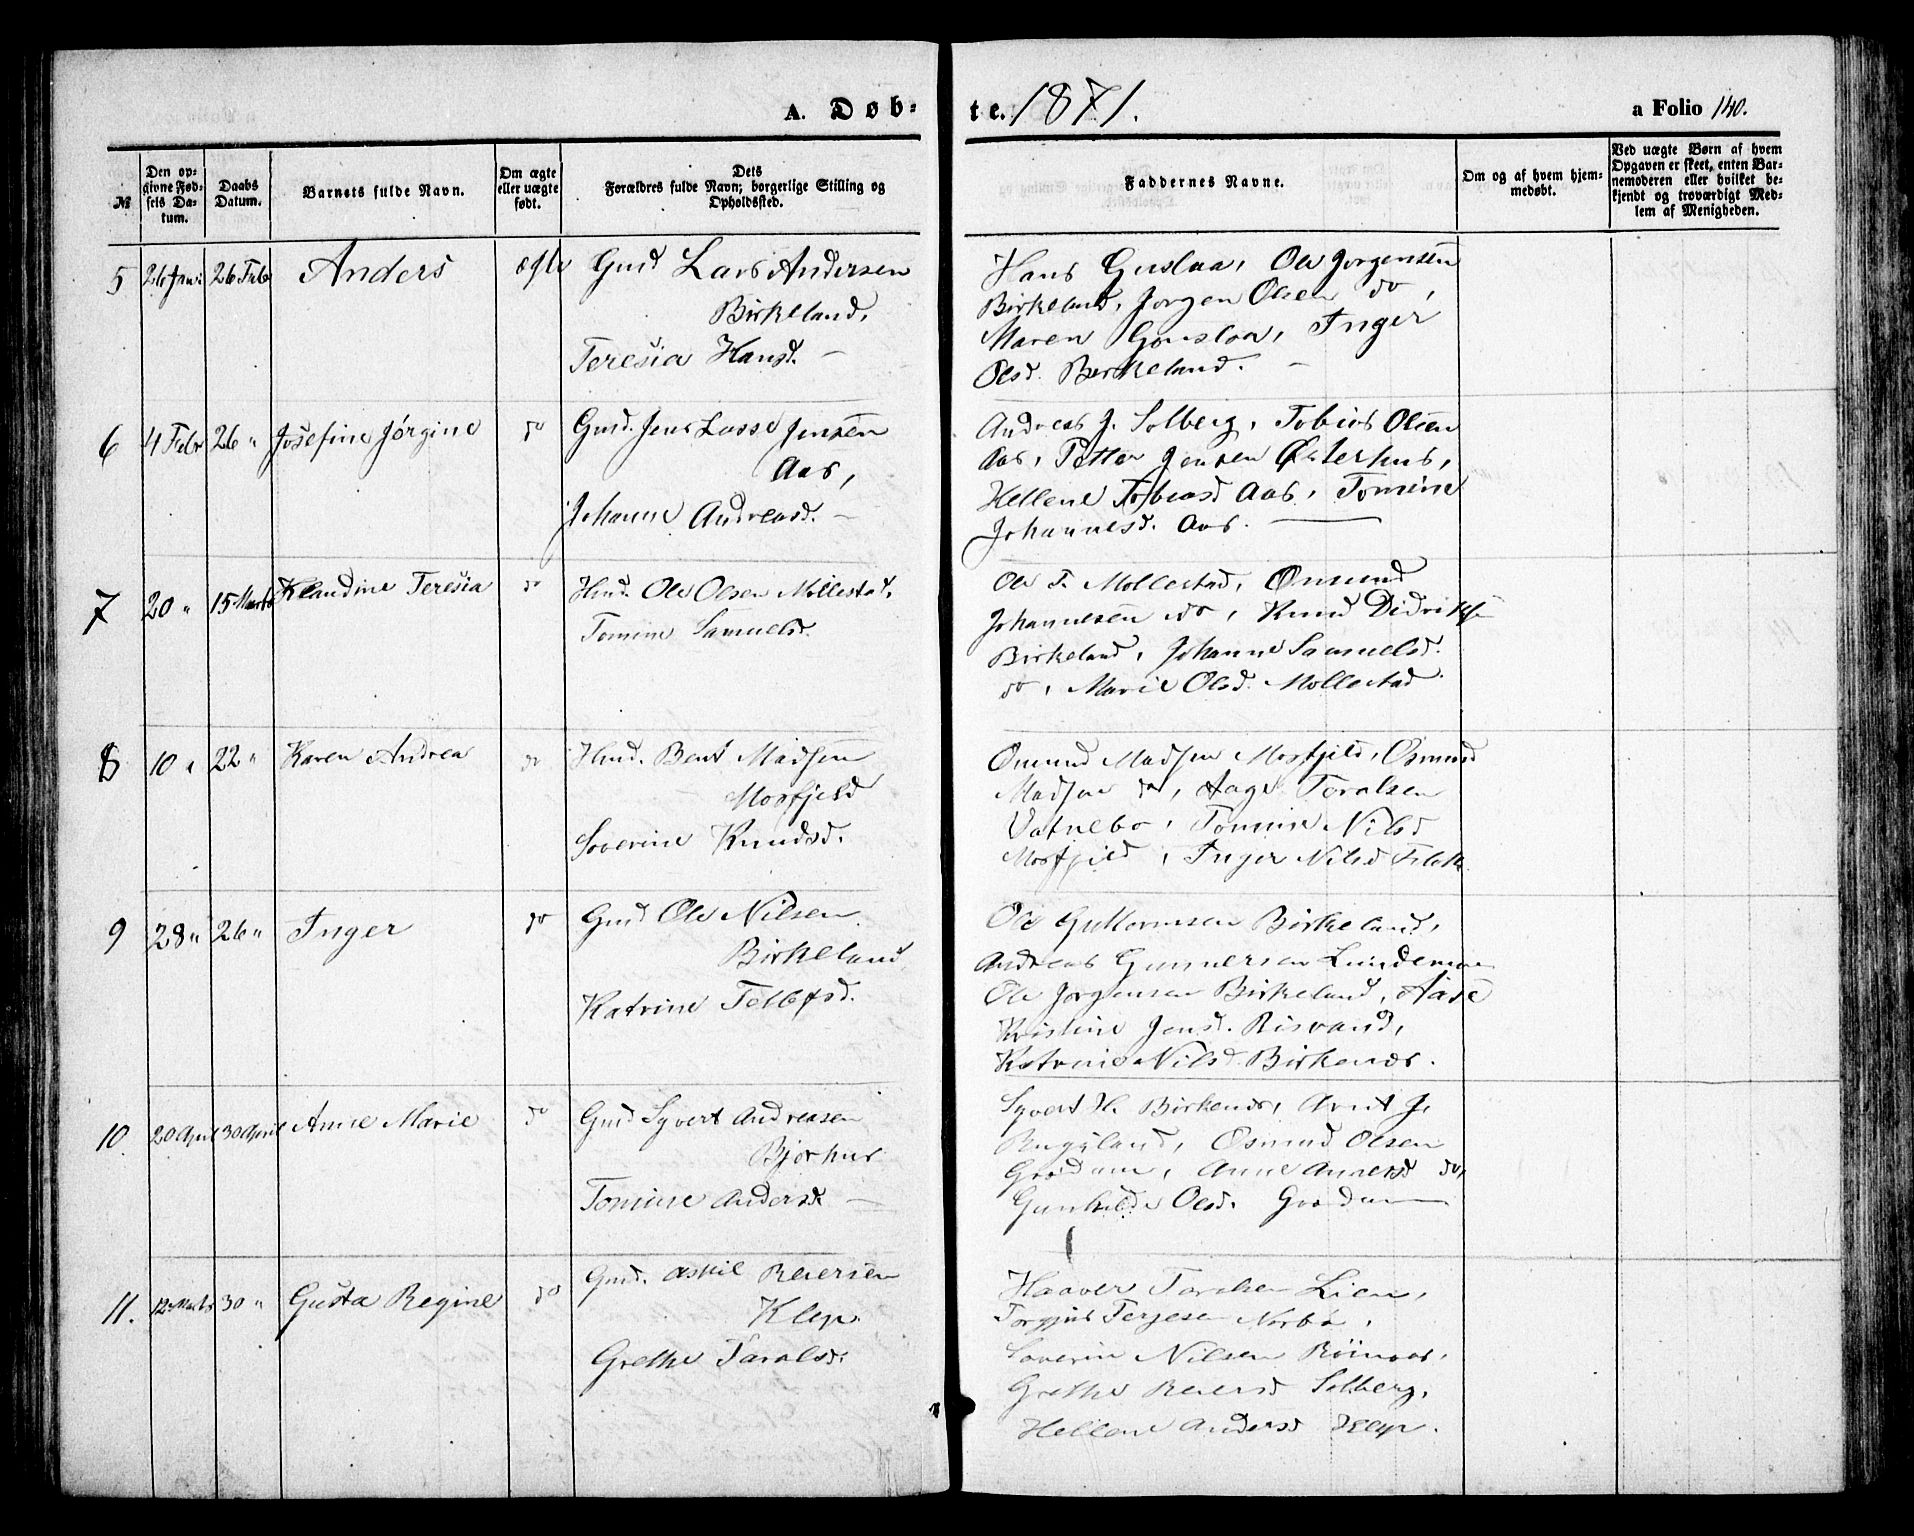 A. Døb-
te. 1871.
a Folio 140.
№
Den op-
givne Fød-
sels Da-
tum.
Daabs
Datum.
Barnets fulde Navn.
Om ægte
eller uægte
født.
Dets
Forældres fulde Navn; borgerlige Stilling og
Opholdssted.
Faddernes Navne.
Om og af hvem hjem-
medøbt.
Ved uægte Børn af hvem
Opgaven er skeet, enten Bar-
nemoderen eller hvilket be-
kjendt og troværdigt Med-
lem af Menigheden.
5 26 Jani 26 Feb Anders ægte Gmd Lars Andersen
Birkeland,
Teresia Hansd. —
Hans Guslaa, Ole Jorgensen
Birkeland, Jorgen Olsen do,
Maren Gouslaa, Inger
Olsd. Berkeland. —
6 4 Febr 26 " Josefine Jørgine do Gmd. Jens Lasse Jensen
Aas,
Johanne Andreasd. —
Andreas J. Solberg, Tobias Olsen
Aas, Petter Jensen Østerhus,
Hellene Tobiasd Aas, Tomine
Johannesd. Aas. —
7 20 " 15 Marts Klaudine Teresia do Hmd. Ole Olsen Mollestad.
Tomine Samuelsd.
Ole T. Mollestad, Omund
Johannesen do, Knud Didriksen
Birkeland, Johanne Samuelsd.
do, Marie Olsd. Mollestad.
8 10 " 22 " Karen Andrea do Hmd. Bent Madsen
Mosfjeld
Soverine Knudsd.
Omund Madsen Mosfjeld, Osmund
Madsen do, Aage Toralsen
Vatnebo, Tomine Nilsd
Mosfjeld, Inger Nilsd Flak
9 28 " 26 " Inger do Gmd Ole Nilsen
Birkeland,
Katrine Tellefsd.
Ole Guttormsen Birkeland,
Andreas Gunnersen Lindemoe
Ole Jorgensen Birkeland, Aase
Kristine Jensd. Risvand,
Katrine Nilsd. Birkenes.
10. 20 April 30 April Anne Marie do Gmd Syvert Andreasen
Bjorhus
Tomine Andersd. —
Syvert H. Birkenes, Arnt J.
Osmund Olsen
Grødum, Anne Andersd do,
Gunhilde Olsd. Grødum —
11. 12 Marts 30 " Gusta Regine do Gmd. Askil Reiersen
Klep.
Grethe Taralsd.
Haaver Taralsen Lien,
Torgjus Terjesen Norbø,
Soverin Nilsen Röinaas,
Grethe Reiersd Solberg,
Hellene Andersd Klep.